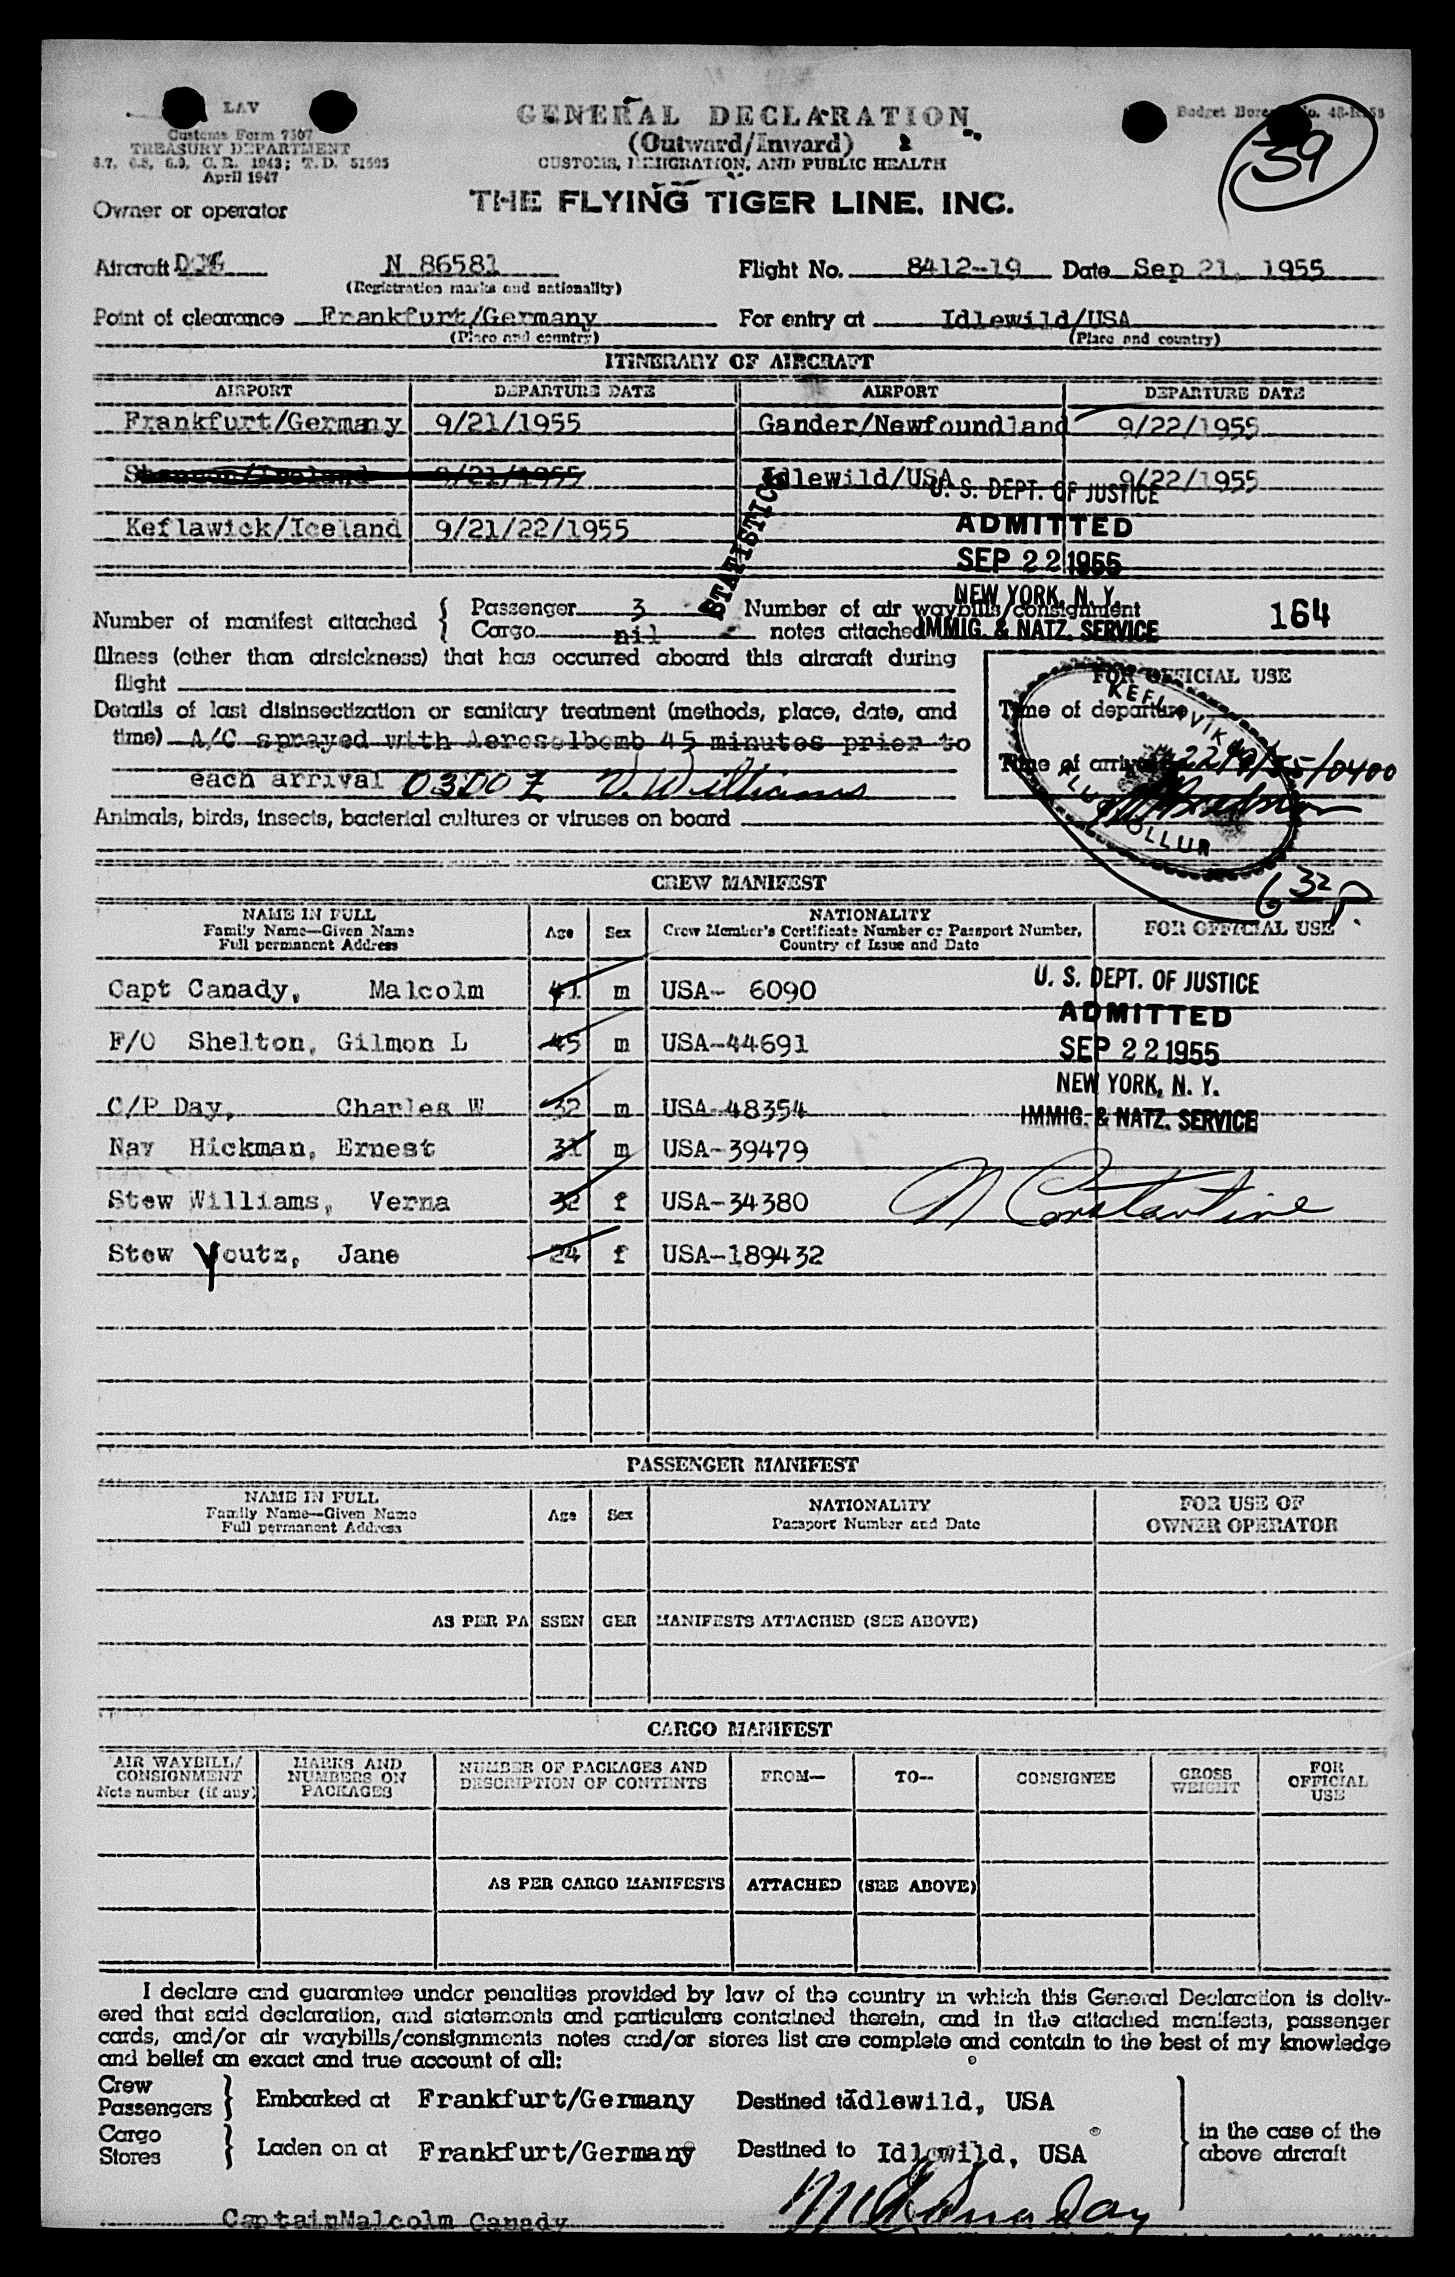 LAV
Customs Form 7507
TREASURY DEPARTMENT
6.7, 6.8, 6.9, C. R. 1943; T. D. 51595
April 1947
Owner or operator
GENERAL DECLARATION
(Outward/Inward)
CUSTOMS, IMMIGRATION, AND PUBLIC HEALTH
THE FLYING TIGER LINE, INC.
39
Aircraft N 86581 Flight No. 8412-19 Date Sep 21, 1955
(Registration marks and nationality)
Point of clearance Frankfurt/Germany For entry at Idlewild/USA
(Place and country) (Place and country)
ITINERARY OF AIRCRAFT
AIRPORT DEPARTURE DATE AIRPORT DEPARTURE DATE
Frankfurt/Germany 9/21/1955 Gander/Newfoundland 9/22/1955
Shannon/Iceland 9/21/1955 Idlewild/USA 9/22/1955
Keflawick/Iceland 9/21/22/1955
STATISTICS
U. S. DEPT. OF JUSTICE
ADMITTED
SEP 22 1955
NEW YORK, N. Y.
IMMIG. & NATZ. SERVICE
164
Number of manifest attached { Passenger 3 Number of air waybills/consignment
Cargo nil notes attached
Illness (other than airsickness) that has occurred aboard this aircraft during
flight
Details of last disinsectization or sanitary treatment (methods, place, date, and
time) A/C sprayed with Aerosolbomb 45 minutes prior to
each arrival 0300 Z V. Williams
Animals, birds, insects, bacterial cultures or viruses on board
FOR OFFICIAL USE
Time of departure
Time of arrival 22/9/55/0400
KEFLAVIK
FLUGVOLLUR
6 32 P.
CREW MANIFEST
NAME IN FULL
Family Name—Given Name
Full permanent Address
Age Sex
NATIONALITY
Crew Member's Certificate Number or Passport Number,
Country of Issue and Date
FOR OFFICIAL USE
Capt Canady, Malcolm 41 m USA- 6090
F/O Shelton, Gilmon L 45 m USA-44691
C/P Day, Charles W 32 m USA-48354
Nav Hickman, Ernest 31 m USA-39479
Stew Williams, Verna 32 f USA-34380
Stew Youtz, Jane 24 f USA-189432
U. S. DEPT. OF JUSTICE
ADMITTED
SEP 22 1955
NEW YORK, N. Y.
IMMIG. & NATZ. SERVICE
N Constantine
PASSENGER MANIFEST
NAME IN FULL
Family Name—Given Name
Full permanent Address
Age Sex
NATIONALITY
Passport Number and Date
FOR USE OF
OWNER OPERATOR
AS PER PASSENGER MANIFESTS ATTACHED (SEE ABOVE)
CARGO MANIFEST
AIR WAYBILL/
CONSIGNMENT
Note number (if any)
MARKS AND
NUMBERS ON
PACKAGES
NUMBER OF PACKAGES AND
DESCRIPTION OF CONTENTS
FROM—
TO—
CONSIGNEE
GROSS
WEIGHT
FOR
OFFICIAL
USE
AS PER CARGO MANIFESTS ATTACHED (SEE ABOVE)
I declare and guarantee under penalties provided by law of the country in which this General Declaration is deliv-
ered that said declaration, and statements and particulars contained therein, and in the attached manifests, passenger
cards, and/or air waybills/consignments notes and/or stores list are complete and contain to the best of my knowledge
and belief an exact and true account of all:
Crew
Passengers } Embarked at Frankfurt/Germany Destined to Idlewild, USA
Cargo
Stores } Laden on at Frankfurt/Germany Destined to Idlewild, USA
} in the case of the
above aircraft
CaptainMalcolm Canady